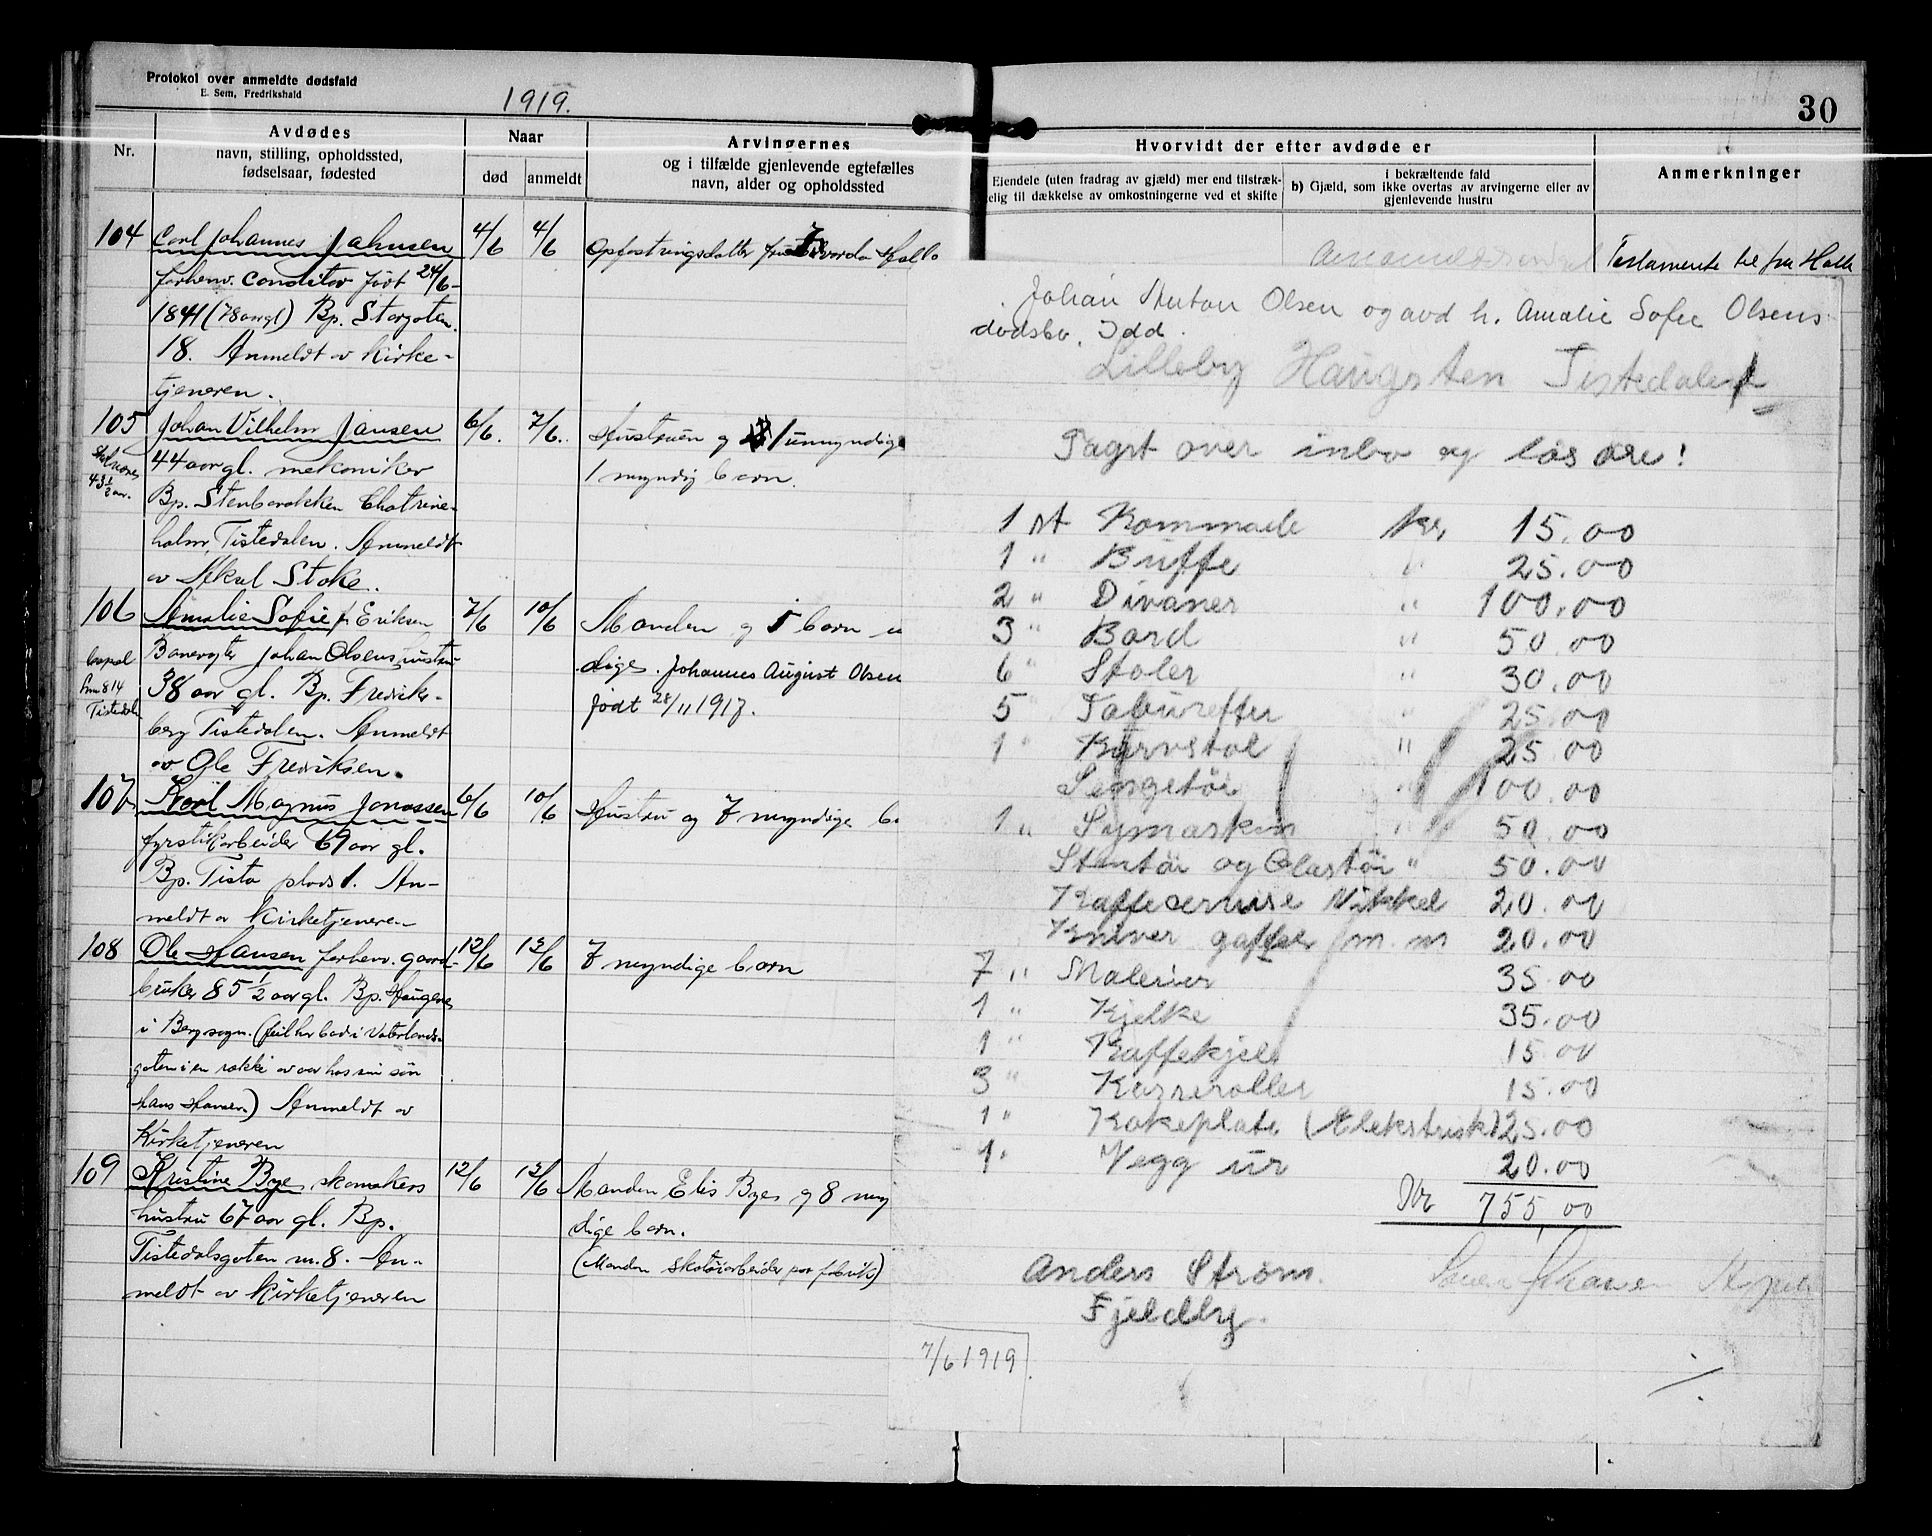 Protokol over anmeldte dødsfald
E. Sem, Fredrikshald
1919.
30
Nr.
Avdødes
navn, stilling, opholdssted,
fødselsaar, fødested
Naar
død
anmeldt
Arvingernes
og i tilfælde gjenlevende egtefælles
navn, alder og opholdssted
Hvorvidt der efter avdøde er
Eiendele (uten fradrag av gjæld) mer end tilstræk-
elig til dækkelse av omkostningerne ved et skifte
i bekræftende fald
b) Gjæld, som ikke overtas av arvingerne eller av
gjenlevende hustru
Anmerkninger
104 Carl Johannes Jahnsen 4/6 4/6 Opfostringsdatter
forhenv. Conditor født 24/6-
1841 (78 aar gl) Bp. Storgaten
18. Anmeldt av Kirke-
tjeneren.
105 Johan Vilhelm Jansen 6/6. 7/6. Hustruen og 1 umyndige
44 aar gl. mekaniker 1 myndig barn.
43 1/2 aar.
Bp. Stenbarakken Chatrine-
holm, Tistedalen. Anmeldt
av Aksel Stoke.
106 Amalie Sofie f. Eriksen 7/6 10/6 Manden og 5 barn
Banevogter Johan Olsens hustru
38 aar gl. Bp. Fredriks-
berg Tistedalen. Anmeldt
av Ole Fredriksen.
Tistedal
dige. Johannes August Olsen
født 28/11 1917.
107 Karl Magnus Jonassen 6/6 10/6 Hustru og 7 myndige b
fyrstikarbeider 67 aar gl.
Bp. Tista plads 1. An-
meldt av Kirketjeneren
108 Ole Hansen forhenv. gaard- 12/6 13/6 7 myndige barn
bruker 85 1/2 aar gl. Bp. Haugene
i Berg sogn.
Hans Hansen.) Anmeldt av
Kirketjeneren
109 Kristine Bye, skomakers 12/6 13/6 Manden Elis Bye og 8 myn
hustru 67 aar gl. Bp. dige barn.
Tistedalsgaten nr. 8. An- (Manden skotøiarbeider paa fabrik)
meldt av Kirketjeneren
Testamente til fru Halle
Johan Anton Olsen og avd h. Amalie Sofie Olsens
dødsbo, Idd.
Lilleby Haugsten Tistedalen
Tagst over inbo og løs øre!
1 st Kommode kr. 15.00
1 " Buffe " 25.00
2 " Divaner " 100.00
3 " Bord " 50.00
6 " Stoler " 30.00
5 " Taburetter " 25.00
1 " Kurvstol " 25.00
Sengetøi " 100.00
1 " Symaskin " 50.00
Stentøi og Glastøi " 50.00
Kaffeservise Nikkel 20.00
Kniver gafler m. m 20.00
7 " Malerier 35.00
1 " Kjelke 35.00
1 " Kaffekjel 15.00
3 " Kasseroller 15.00
1 " Kokeplate (Elekstrisk) 25.00
1 " Vegg ur 20.00
Kr 755,00
Anders Strøm.
Fjeldby.
7/6 1919